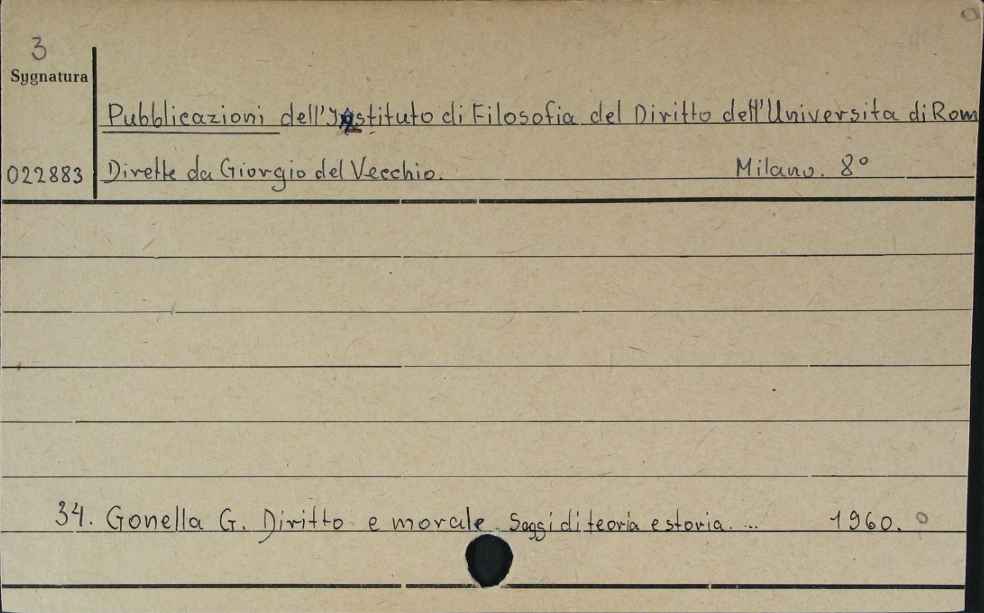 3
Sygnatura
Pubblicazioni dell'Istituto di Filosofia del Diritto dell'Universita di Rom
022883 Dirette da Giorgio del Vecchio. Milano. 8°
34. Gonella G. Diritto e morale. Saggi di teoria e storia. ... 1960. o